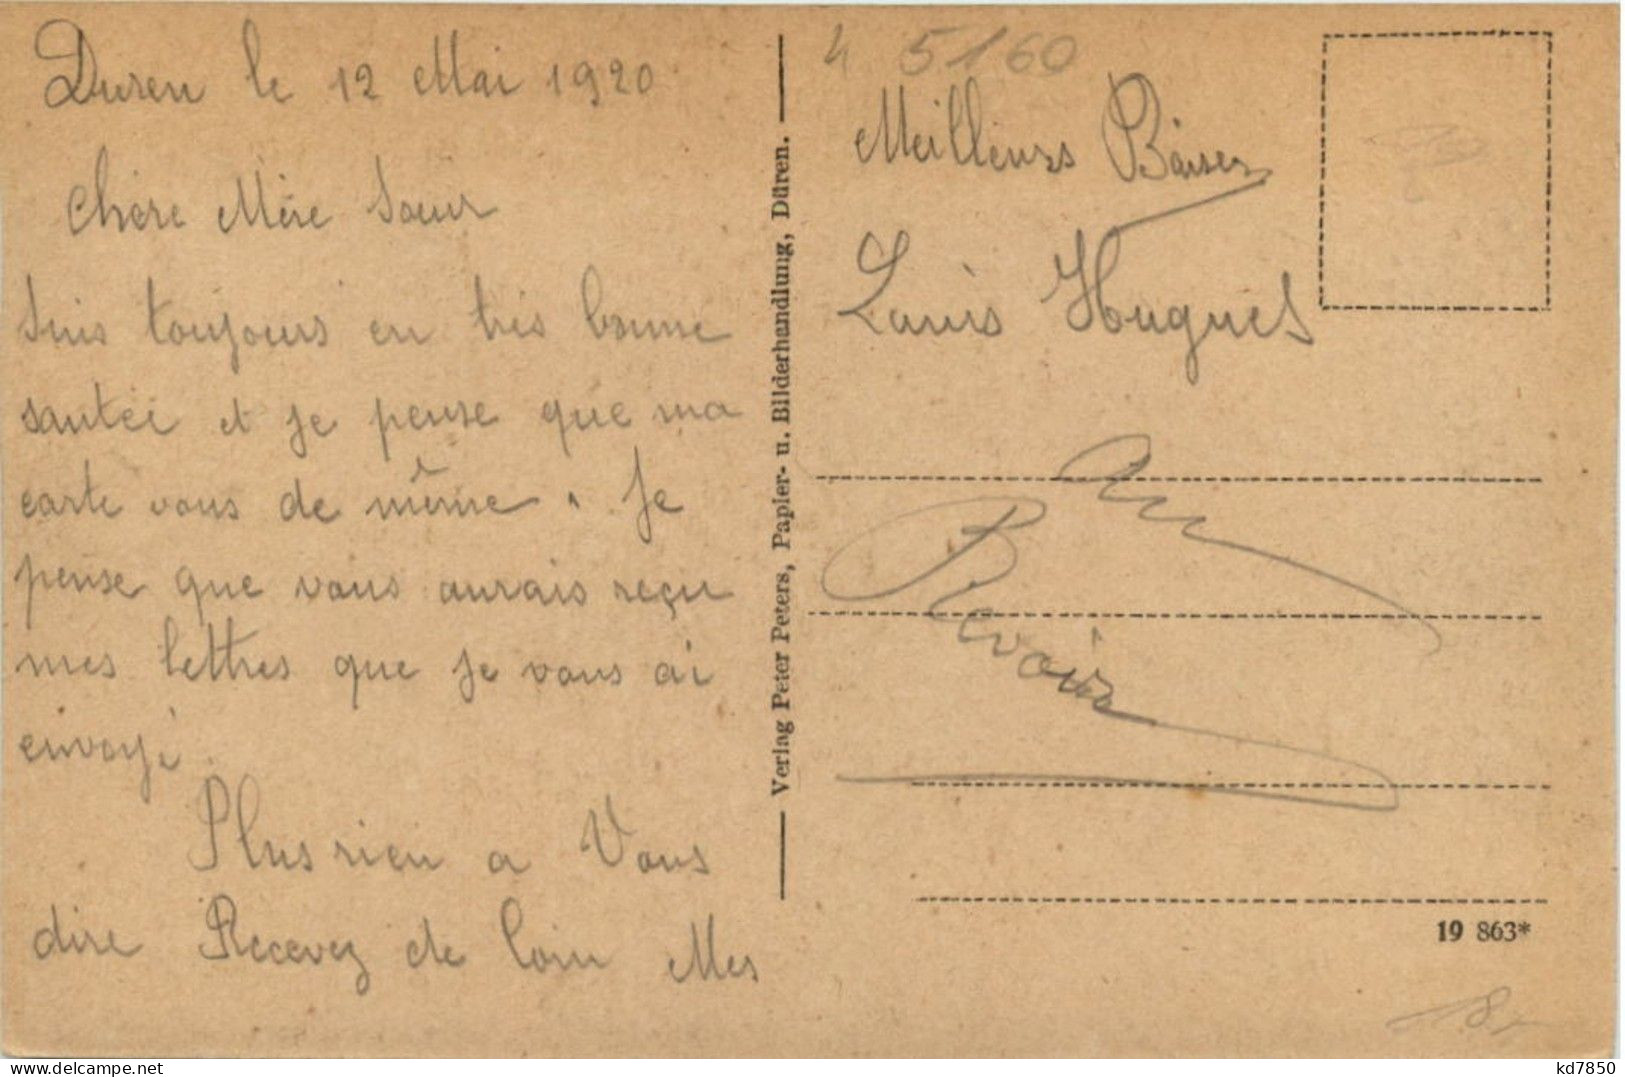 Duren le 12 Mai 1920
Chère Mère Sœur
Suis toujours en très bonne
santéé et je pense que ma
carte vous de même. Je
pense que vous aurais reçu
mes lettres que je vous ai
envoyé.
Plus rien a Vous
dire Recevez de loin Mes
Verlag Peter Peters, Papier- u. Bilderhandlung, Düren.
4 5160
Meilleurs Baiser
Louis Hugues
Au
Revoir
19 863*
18,-
kd7850